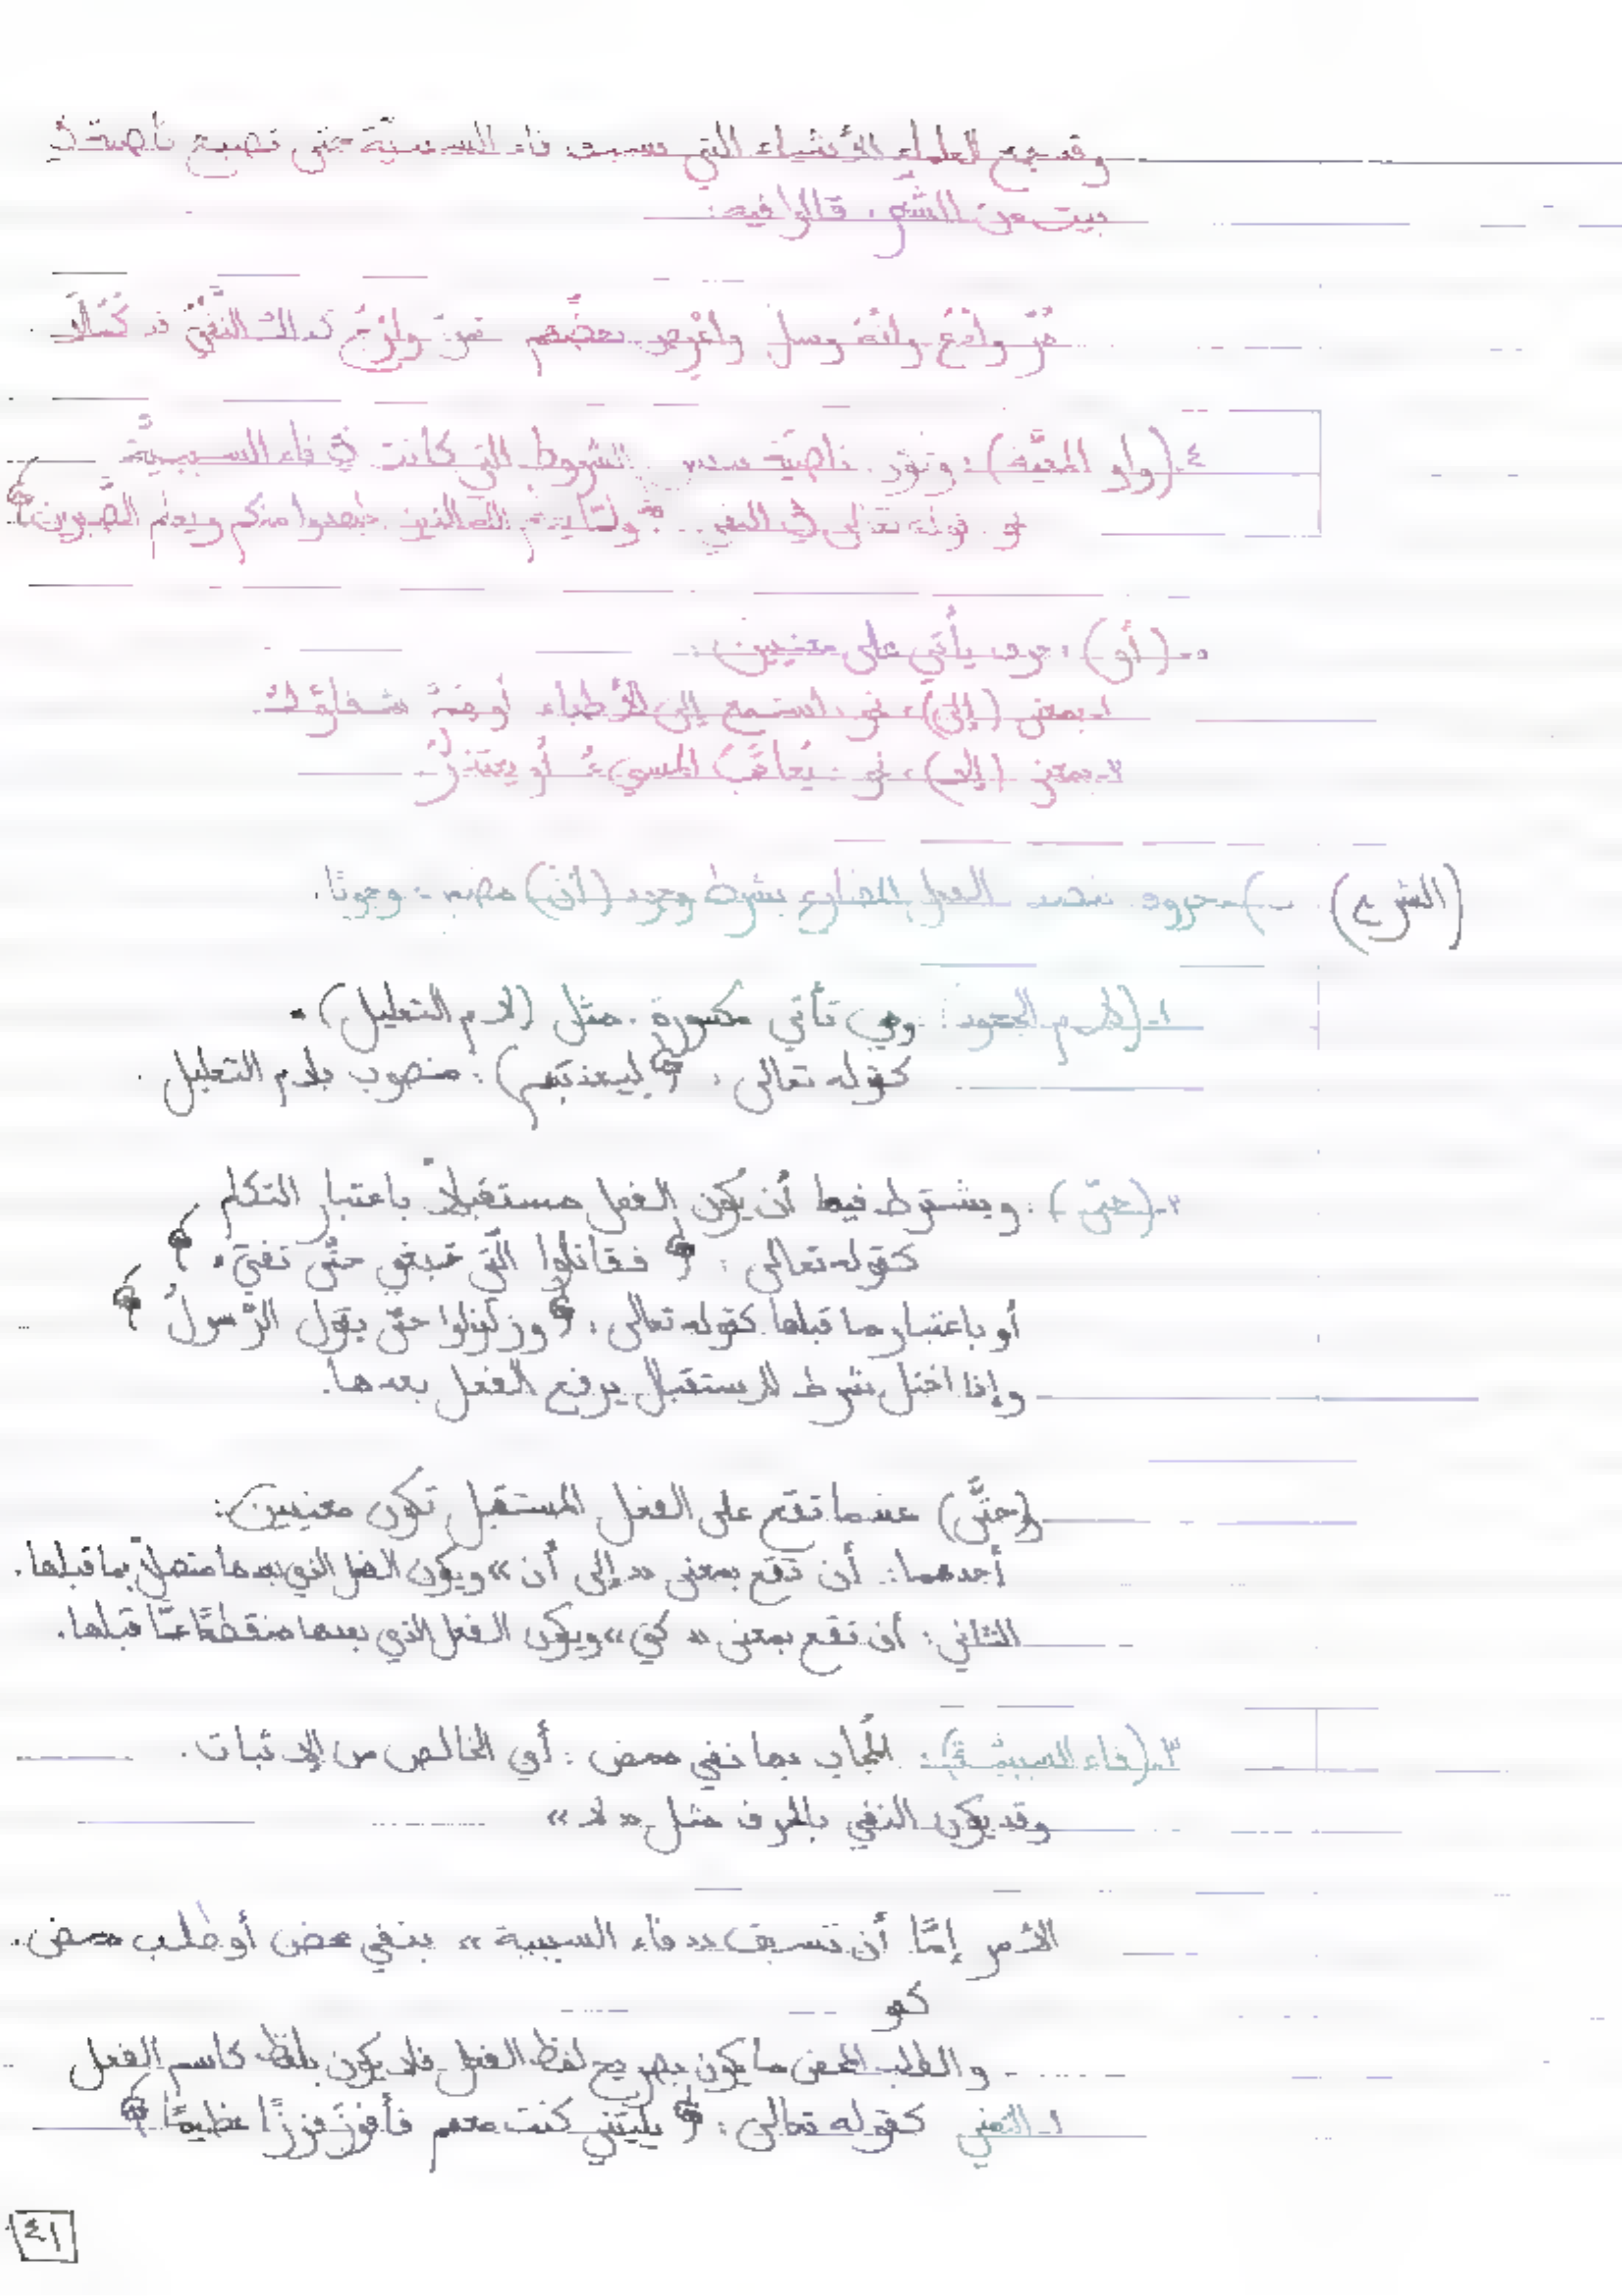 وقد جمع العلماء الأشياء التي تسبق فاء السببية حتى تصبح ناصبة في
بيت من الشعر، قالوا فيه:
مُرْ وادْعُ وانْهَ وسل واعْرِض لحضِّهم تمنَّ وارْجُ كذاك النَّفْيُ قد كَمُلَا.
٤-(واو المعيَّة): ناصبة الشروط التي كانت في فاء السببيَّة
نحو قوله تعالى في النفي: ﴿ولمّا يعلم الله الذين جاهدوا منكم ويعلم الصَّبرين﴾
٥-(أو): حرف يأتي على معنيين:
١-بمعنى (إلى)، نحو: استمع إلى الأطباء أو
٢-بمعنى (إلا)، نحو: يُعاقَبُ المسيءُ أو يعتذرَ.
(الشرح) ب)-حروف تنصب الفعل المضارع بشرط وجود (أنْ) مضمرة وجوبًا.
١-(لام الجحود): وهي تأتي مكسورة. مثل (لام التعليل).
كقوله تعالى: ﴿ليعذبَهم): منصوب بلام التعليل.
٢-(حتّى): ويشترط فيها أن يكون الفعل مستقبلاً باعتبار التكلم
كقوله تعالى: ﴿فقاتلوا الّتي تبغي حتّى تفيء﴾
أو باعتبار ما قبلها كقوله تعالى: ﴿وزلزلوا حتّى يقول الرّسولُ﴾
وإذا اختل شرط الاستقبال يرفع الفعل بعدها.
(حتَّى) عندما تقع على الفعل المستقبل تكون معنيين:
أحدهما: أن تقع بمعنى «إلى أن» ويكون الفعل الذي بعدها متصلاً بما قبلها.
الثاني: أن تقع بمعنى «كي» ويكون الفعل الذي بعدها منقطعًا عمَّا قبلها.
٣-(فاء السببيّة): المُجاب بها نفي محض: أي الخالص من الإثبات.
وقد يكون النفي بالحرف مثل «لا»
الأمر إمَّا أن تسبق «فاء السببية» بنفي محض أو طلب محض.
نحو
والطلب المحض ما يكون بصريح لفظ الفعل فلا يكون بلفظ كاسم الفعل
١-التمني كقوله تعالى: ﴿يليتني كنت معهم فأفوزَ فوزًا عظيمًا﴾
٤١